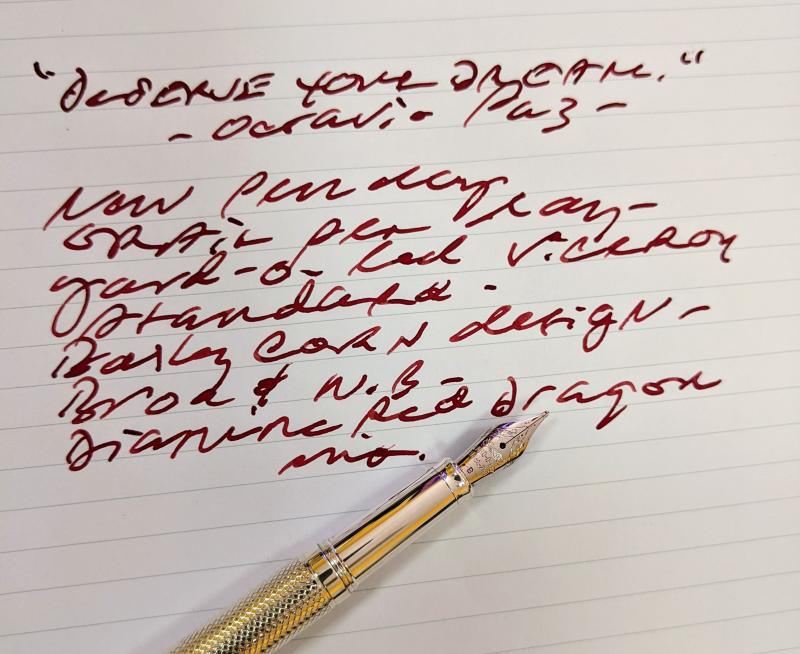 "DESERVE YOUR DREAM."
- Octavio Paz -
New Pen day
Grail pen
yard-o-Led VICEROY
standard -
Barley CORN design -
Broad NIB -
Diamine Red Dragon
ink.
B